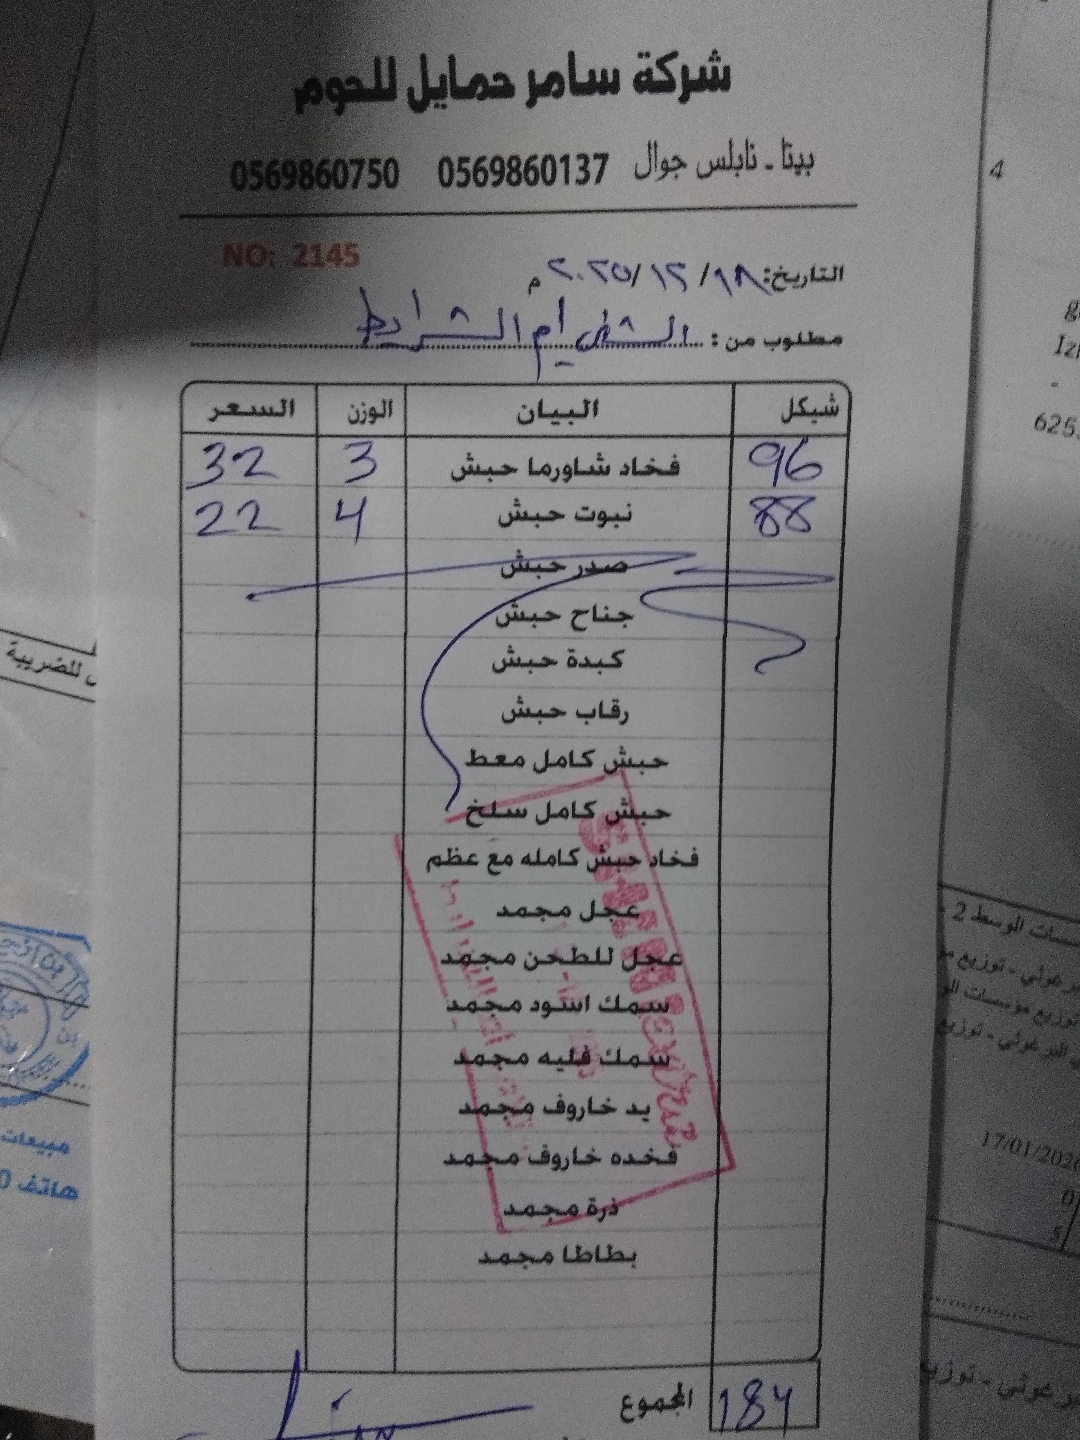 شركة سامر حمايل للحوم
بيتا - نابلس جوال 0569860137 0569860750
NO: 2145
التاريخ: ١٨/١٢/٢٠٢٥ م
مطلوب من : الشني ام الشرايط
شيكل البيان الوزن السعر
96 فخاد شاورما حبش 3 32
88 نبوت حبش 4 22
صدر حبش
جناح حبش
كبدة حبش
رقاب حبش
حبش كامل معط
حبش كامل سلخ
فخاد حبش كامله مع عظم
عجل مجمد
عجل للطحن مجمد
سمك اسود مجمد
سمك فليه مجمد
يد خاروف مجمد
فخده خاروف مجمد
ذرة مجمد
بطاطا مجمد
المجموع 184
4
625
ل للضريبة
مبيعات
هاتف 0
سسات الوسط 2 -
17/01/2026